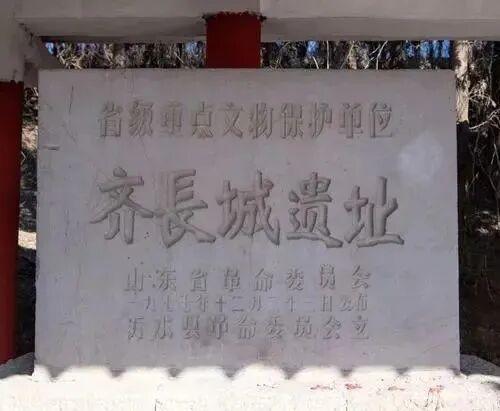 省级重点文物保护单位
齐長城遗址
山东省革命委员会
一九七七年十二月二十三日公布
沂水县革命委员会立